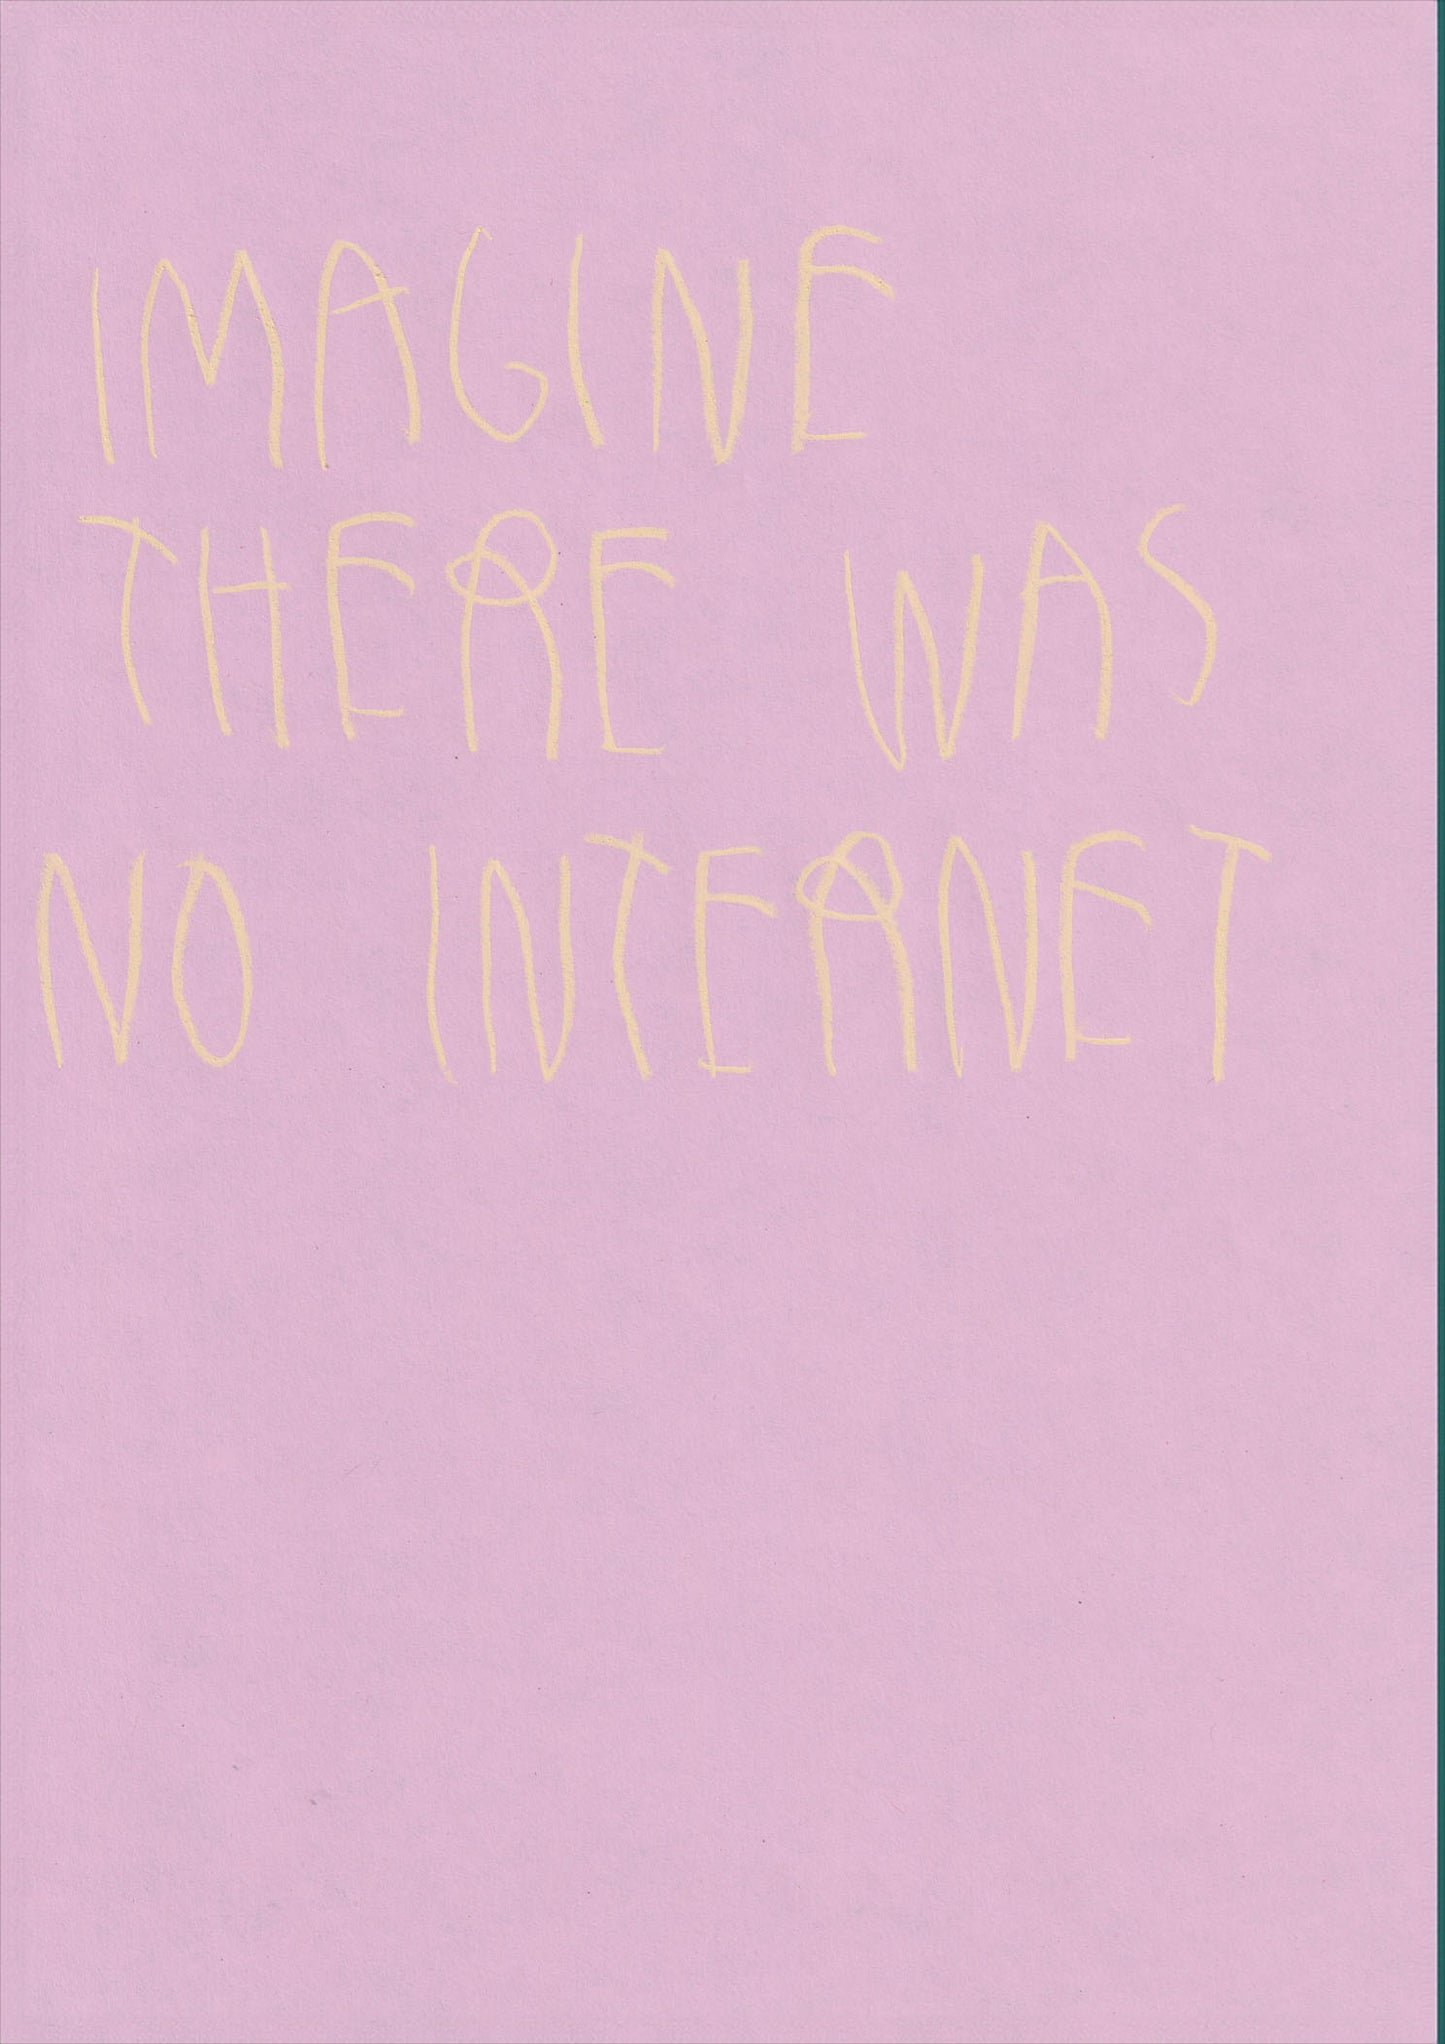 IMAGINE
THERE WAS
NO INTERNET